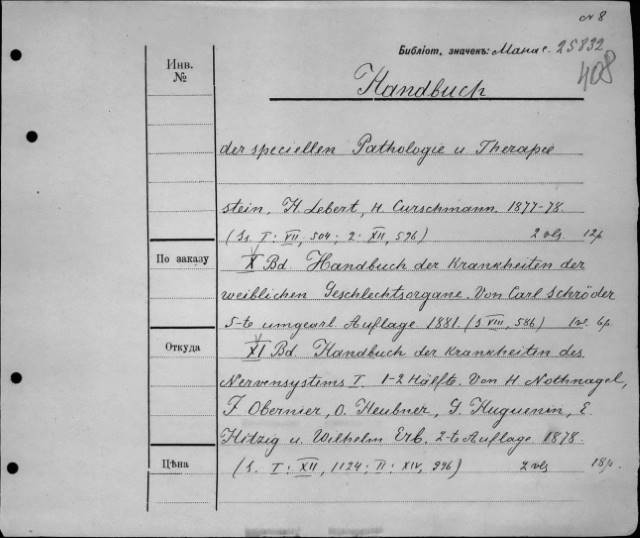 № 8
Библіот. значекъ: Манас. 25832
408
Инв. №
Handbuch
der speciellen Pathologie u Therapie
stein, H. Lebert, H. Curschmann. 1877-78.
(S. I: VII, 504; 2: XII, 596) 2 vlg. 12р
По заказу
X Bd Handbuch der Krankheiten der
weiblichen Geschlechtsorgane. Von Carl Schröder
5-te umgearl. Auflage 1881. (S VIII, 586) 6р.
Откуда
XI Bd. Handbuch der Krankheiten des
Nervensystems I. 1-2 Hälfte. Von H. Nothnagel,
F. Obernier, O. Heubner, G. Huguenin, E.
Hitzig u. Wilhelm Erb. 2-te Auflage. 1878.
Цѣна
(S. I: XII, 1124; II: XIV, 996) 2 vlg 18р.